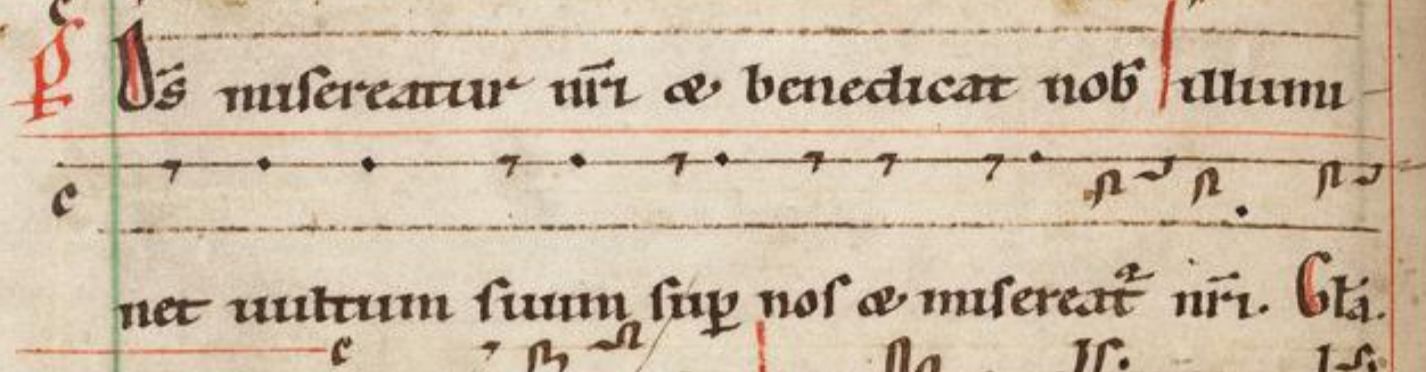 P Ds̄ misereatur nr̄i & benedicat nob̄ illumi
c
net uultum suum suꝑ nos & misereat᷑ nr̄i. Gl̄a.
c